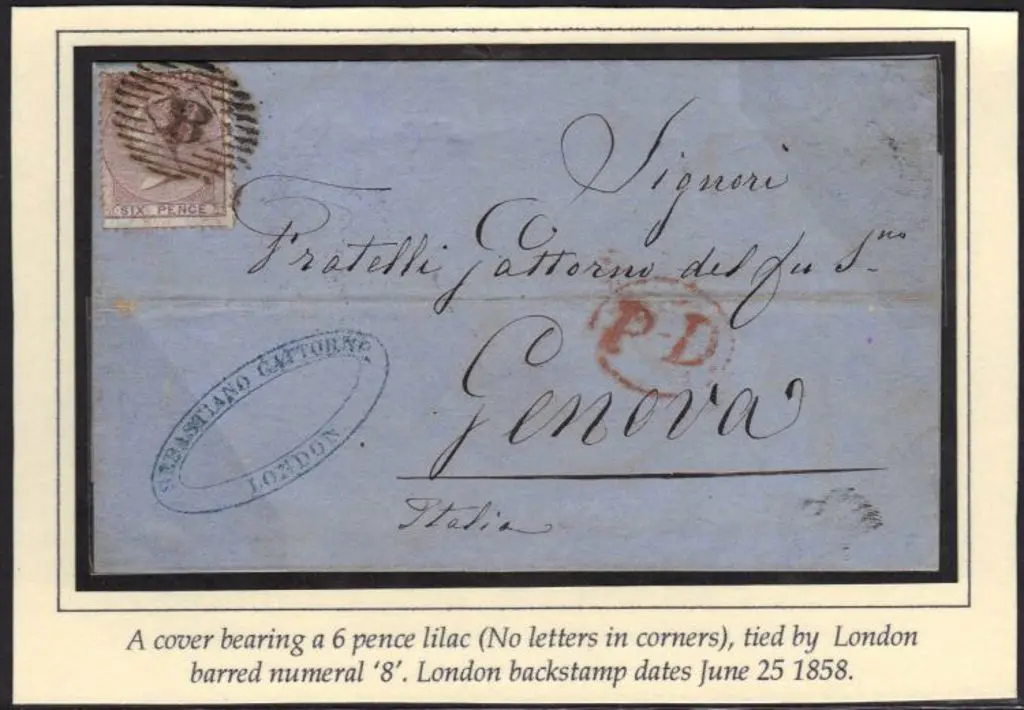 8
SIX PENCE
Signori
Fratelli Gattorno del fu S.no
P-D
Genova
Italia
SEBASTIANO GATTORNO
LONDON
A cover bearing a 6 pence lilac (No letters in corners), tied by London
barred numeral '8'. London backstamp dates June 25 1858.